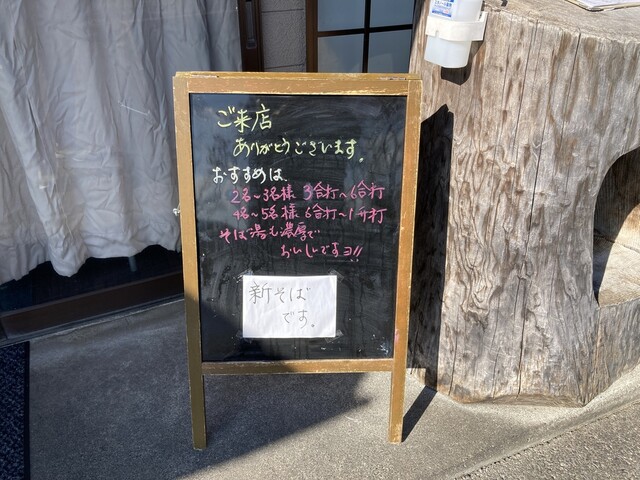 ご来店
ありがとうございます。
おすすめは、
2名～3名様 3合打～6合打
4名～5名様 6合打～1升打
そば湯も濃厚で
おいしいですヨ!!
新そば
です。